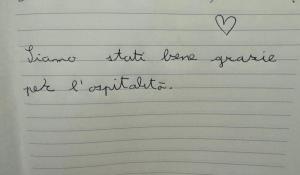 Siamo stati bene grazie
per l'ospitalità.